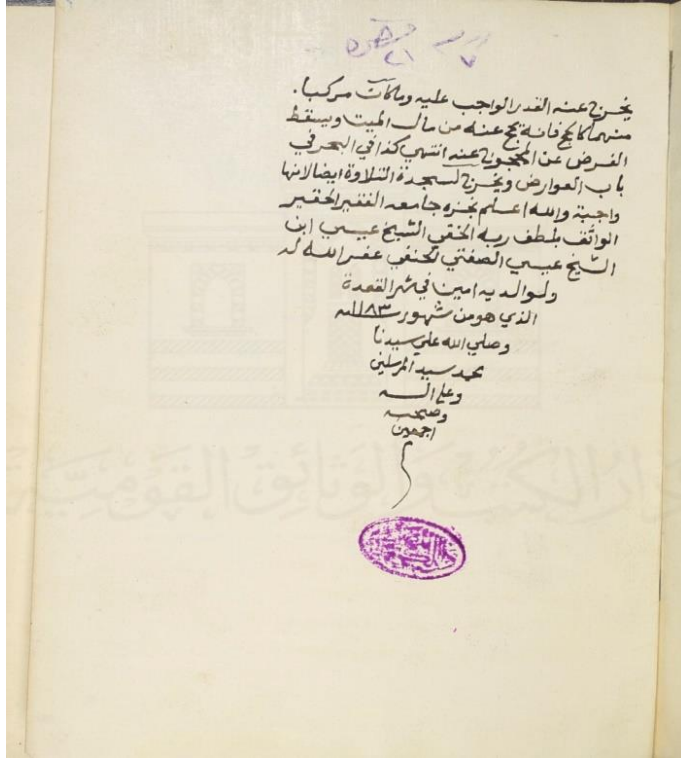 يخرج عنه القدر الواجب عليه وما كان مركبا
منهما كالحج فانه يحج عنه من مال الميت ويسقط
الفرض عن المحجوج عنه انتهي كذا في البحر في
باب العوارض ويخرج لسجدة التلاوة ايضا لانها
واجبة والله اعلم نجزه جامعه الفقير الحقير
الواثق بلطف ربه الخفي الشيخ عيسي ابن
الشيخ عيسي الصفتي الحنفي غفر الله له
ولوالديه امين في شهر القعدة
الذي هو من شهور سنة ١١٨٣
وصلي الله علي سيدنا
محمد سيد المرسلين
وعلي اله
وصحبه
اجمعين
دار الكتب والوثائق القومية